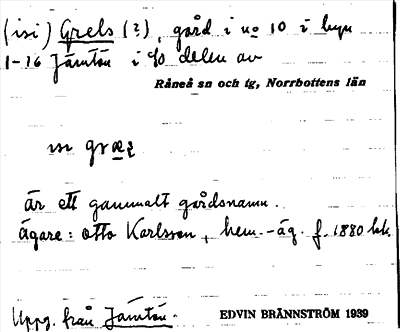 (isi) Grels (2), gård i no 10 i byn
1-16 Jämtön i SO delen av
Råneå sn och tg, Norrbottens län
är ett gammalt gårdsnamn.
ägare: Otto Karlsson, hem.-äg. f. 1880 tal.
Uppg. från Jämtön.
EDVIN BRÄNNSTRÖM 1939